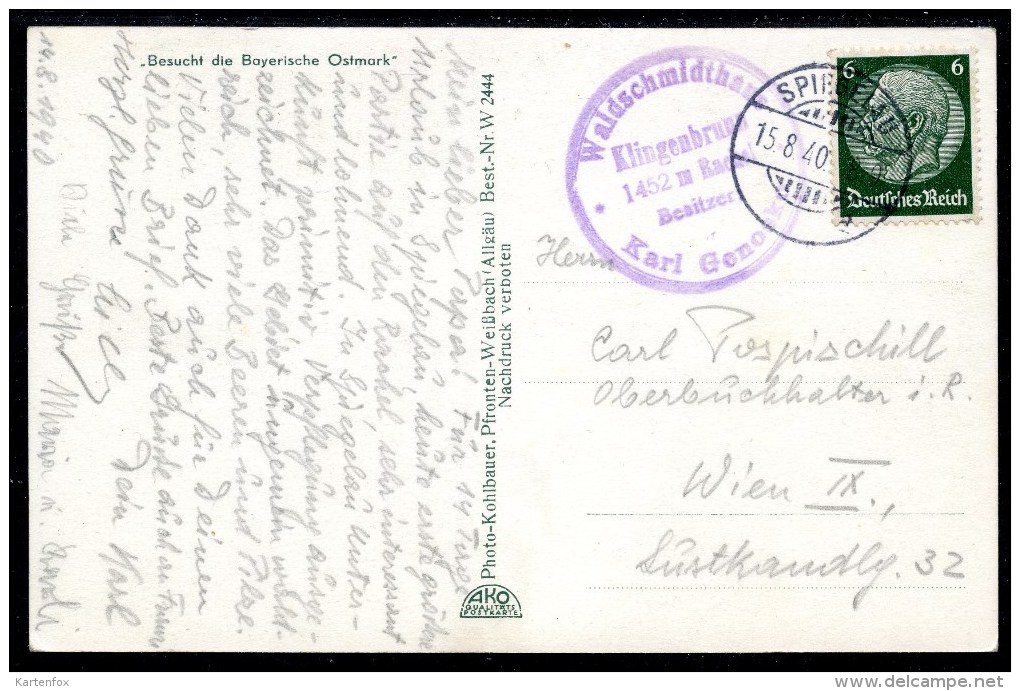 „Besucht die Bayerische Ostmark"
14.8.1940
Mein lieber Pepperl! Für 14 Tage
Urlaub in Spiegelau, heute erste größere
Partie auf den Rachel sehr interessant
und lohnend. In Spiegelau Unter-
kunft primitiv Verpflegung ausge-
zeichnet. Das Gebiet ungemein wald-
reich, so viele Beeren und Pilze.
Vielen Dank auch für Deinen
lieben Brief. Beste Grüße auch an
Herzl. Grüsse Dein Karl
Viele Grüße Maria u.
Photo-Kohlbauer, Pfronten-Weißbach (Allgäu) Best.-Nr. W 2444
Nachdruck verboten
AKO
QUALITÄTS
POSTKARTE
Waldschmidthau
Klingenbrunn
1452 m Rachel
Besitzer
Karl Geno
SPIEGELAU
15.8.40
6 6
Deutsches Reich
Herrn
Carl Pospischill
Oberbuchhalter i. R.
Wien IX.,
Lustkandlg. 32
Kartenfox
delcampe.net